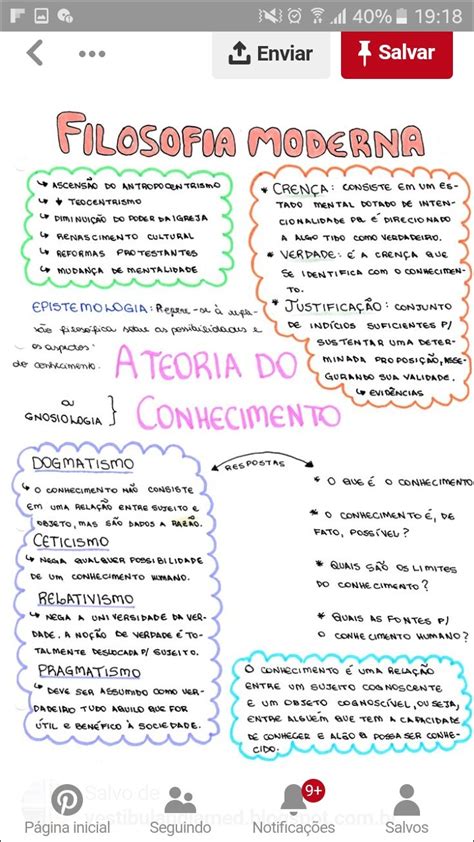 40% 19:18
Enviar
Salvar
FILOSOFIA MODERNA
↳ ASCENSÃO DO ANTROPOCENTRISMO
↳ ↓ TEOCENTRISMO
↳ DIMINUIÇÃO DO PODER DA IGREJA
↳ RENASCIMENTO CULTURAL
↳ REFORMAS PROTESTANTES
↳ MUDANÇA DE MENTALIDADE
* CRENÇA: CONSISTE EM UM ES-
TADO MENTAL DOTADO DE INTEN-
CIONALIDADE PQ É DIRECIONADO
A ALGO TIDO COMO VERDADEIRO.
* VERDADE: É A CRENÇA QUE
SE IDENTIFICA COM O CONHECIMEN-
TO.
* JUSTIFICAÇÃO: CONJUNTO
DE INDÍCIOS SUFICIENTES P/
SUSTENTAR UMA DETER-
MINADA PROPOSIÇÃO, ASSE-
GURANDO SUA VALIDADE.
↳ EVIDÊNCIAS
EPISTEMOLOGIA: Refere-se à refle-
xão filosófica sobre as possibilidades e
os aspectos do
conhecimento.
OU
GNOSIOLOGIA }
A TEORIA DO
CONHECIMENTO
DOGMATISMO
↳ O CONHECIMENTO NÃO CONSISTE
EM UMA RELAÇÃO ENTRE SUJEITO E
OBJETO, MAS SÃO DADOS A RAZÃO.
CETICISMO
↳ NEGA QUALQUER POSSIBILIDADE
DE UM CONHECIMENTO HUMANO.
RELATIVISMO
↳ NEGA A UNIVERSIDADE DA VER-
DADE. A NOÇÃO DE VERDADE É TO-
TALMENTE DESLOCADA P/ SUJEITO.
PRAGMATISMO
↳ DEVE SER ASSUMIDO COMO VER-
DADEIRO TUDO AQUILO QUE FOR
ÚTIL E BENÉFICO À SOCIEDADE.
RESPOSTAS
* O QUE É O CONHECIMENTO
* O CONHECIMENTO É, DE
FATO, POSSÍVEL?
* QUAIS SÃO OS LIMITES
DO CONHECIMENTO?
* QUAIS AS FONTES P/
O CONHECIMENTO HUMANO?
O CONHECIMENTO É UMA RELAÇÃO
ENTRE UM SUJEITO COGNOSCENTE
E UM OBJETO COGNOSCÍVEL, OU SEJA,
ENTRE ALGUÉM QUE TEM A CAPACIDADE
DE CONHECER E ALGO Q POSSA SER CONHE-
CIDO.
Salvo de
vestibulandiamed.blogspot.com.b
9+
Página inicial
Seguindo
Notificações
Salvos